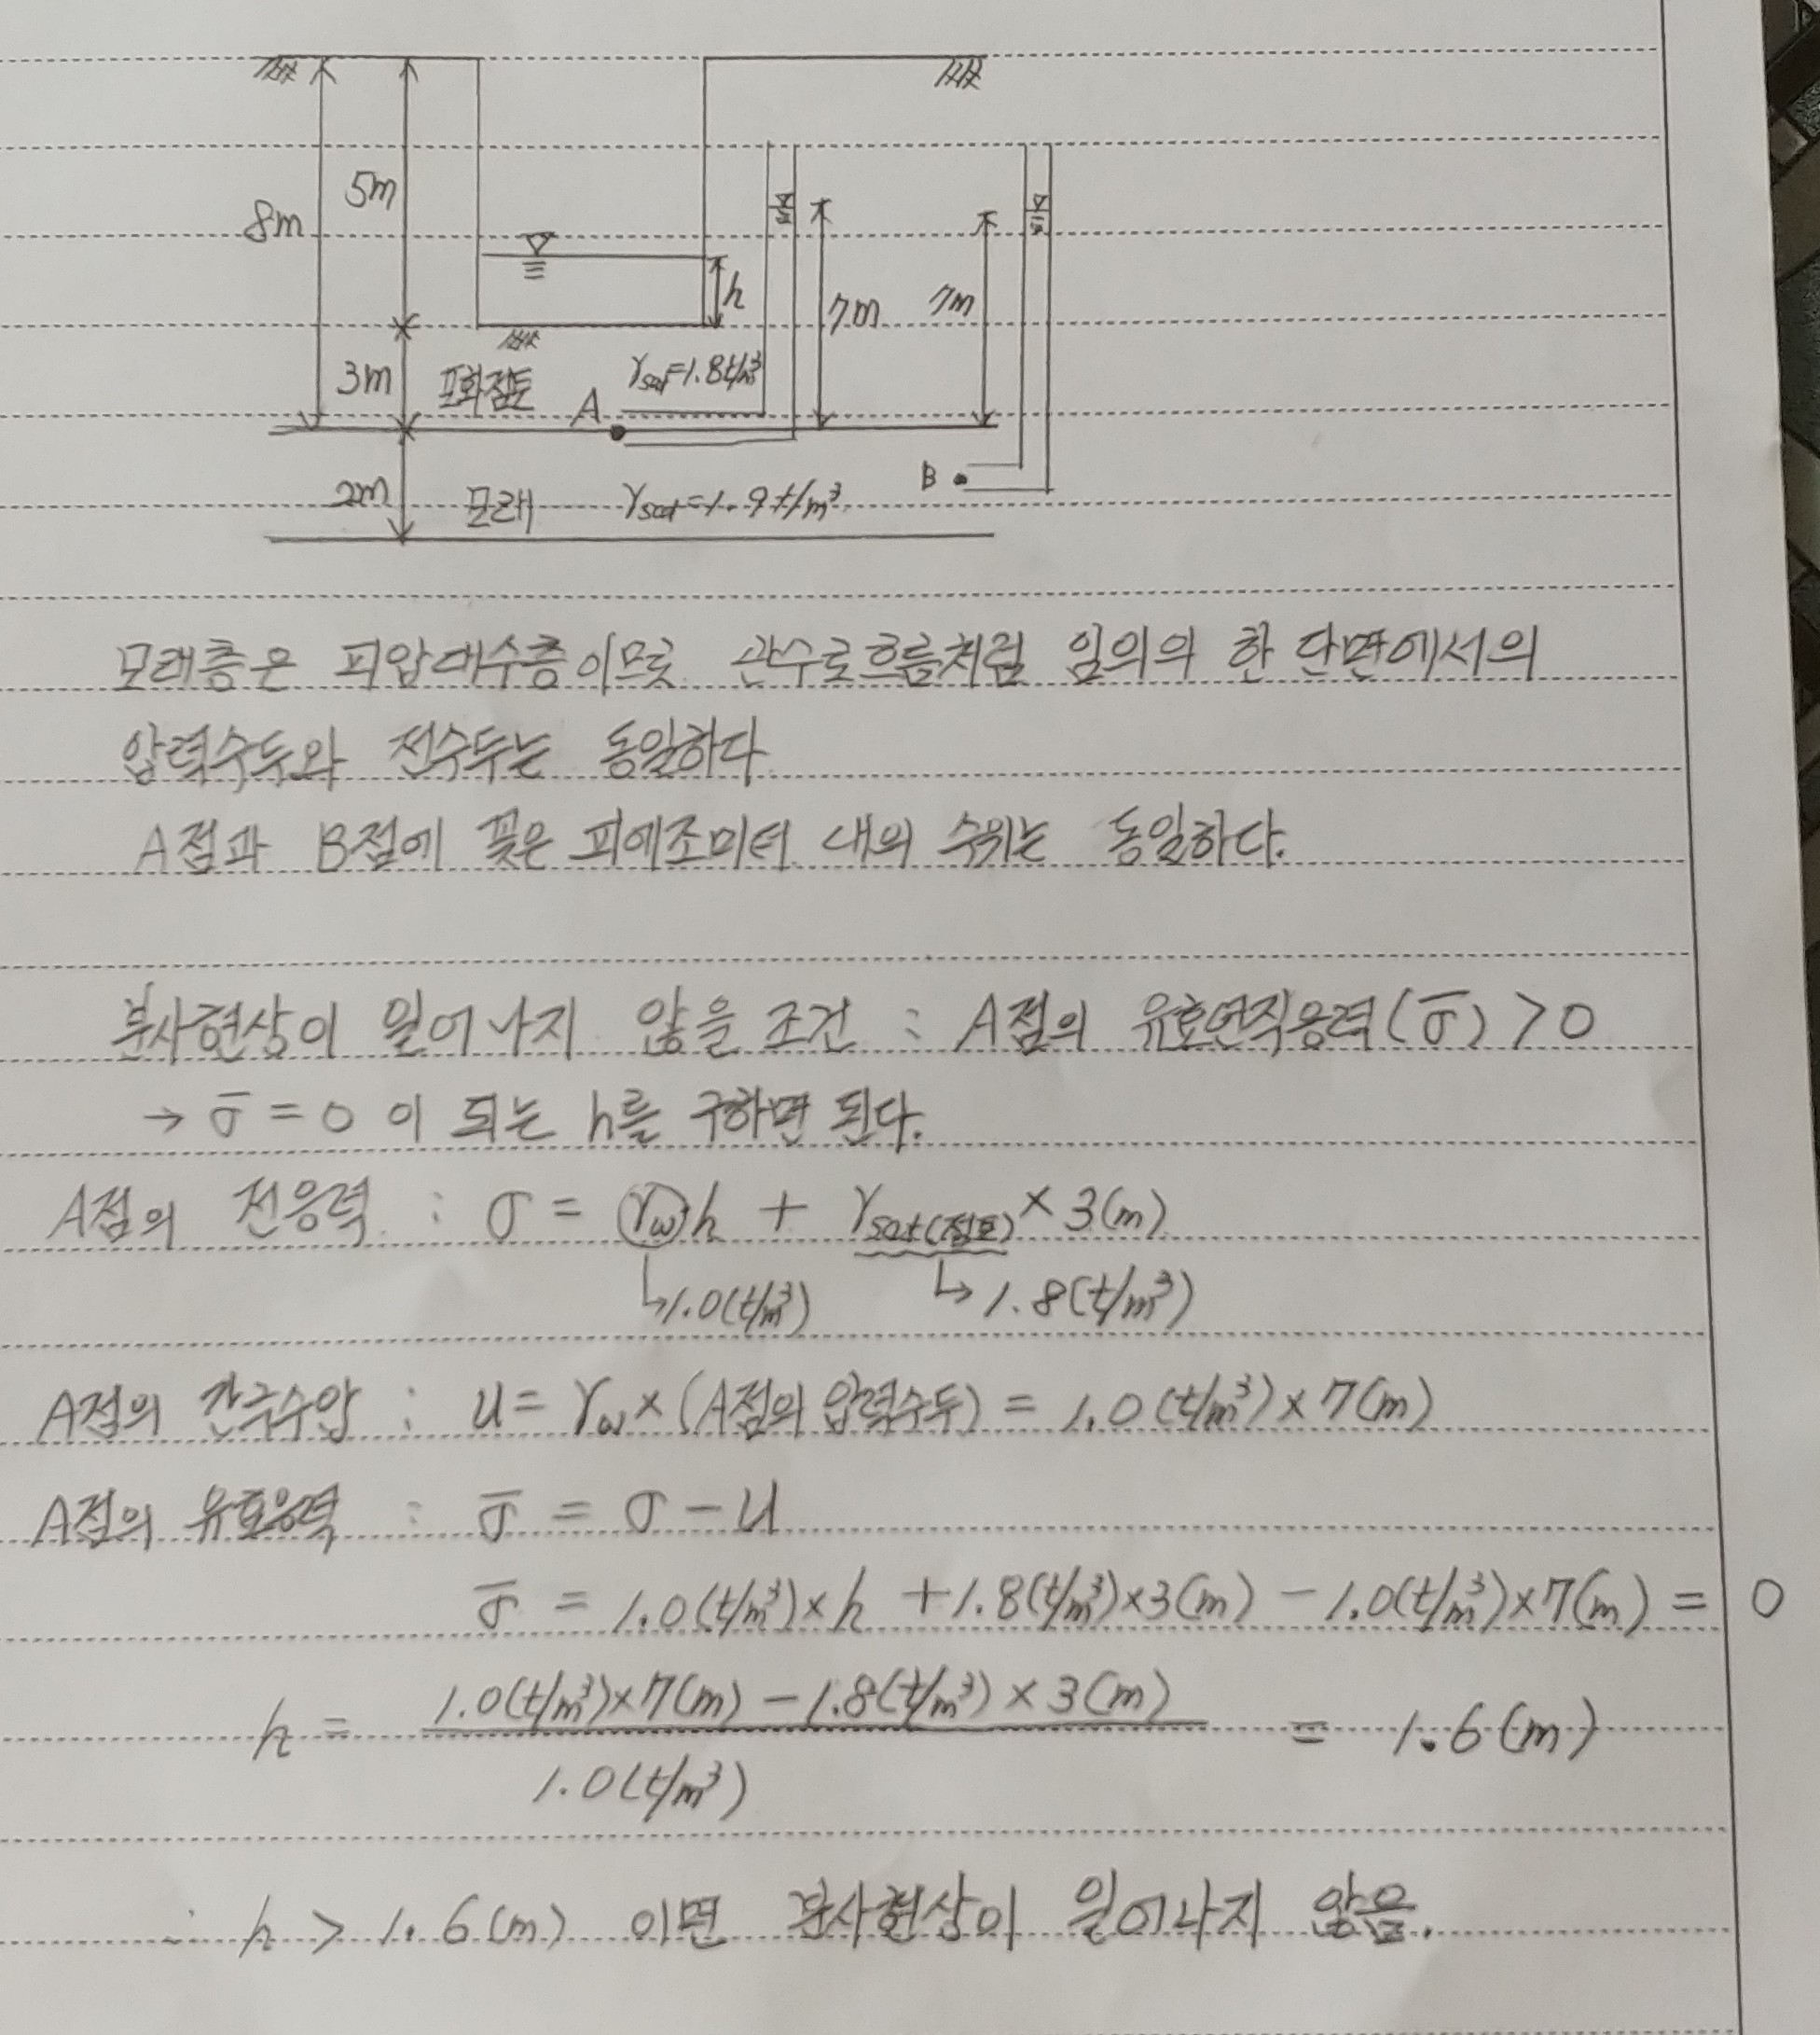 8m
5m
h
7m
7m
3m
포화점토
γsat=1.8t/m³
A
B
2m
모래
γsat=1.9t/m³
모래층은 피압대수층이므로 관수로흐름처럼 임의의 한 단면에서의
압력수두와 전수두는 동일하다
A점과 B점에 꽂은 피에조미터 내의 수위는 동일하다.
분사현상이 일어나지 않을 조건 : A점의 유효연직응력(σ̅) > 0
→ σ̅ = 0 이 되는 h를 구하면 된다.
A점의 전응력 : σ = γw h + γsat(점토) × 3(m)
↳ 1.0(t/m³) ↳ 1.8(t/m³)
A점의 간극수압 : u = γw × (A점의 압력수두) = 1.0(t/m³) × 7(m)
A점의 유효응력 : σ̅ = σ - u
σ̅ = 1.0(t/m³) × h + 1.8(t/m³) × 3(m) - 1.0(t/m³) × 7(m) = 0
h = 1.0(t/m³) × 7(m) - 1.8(t/m³) × 3(m) = 1.6(m)
1.0(t/m³)
∴ h > 1.6(m) 이면 분사현상이 일어나지 않음.